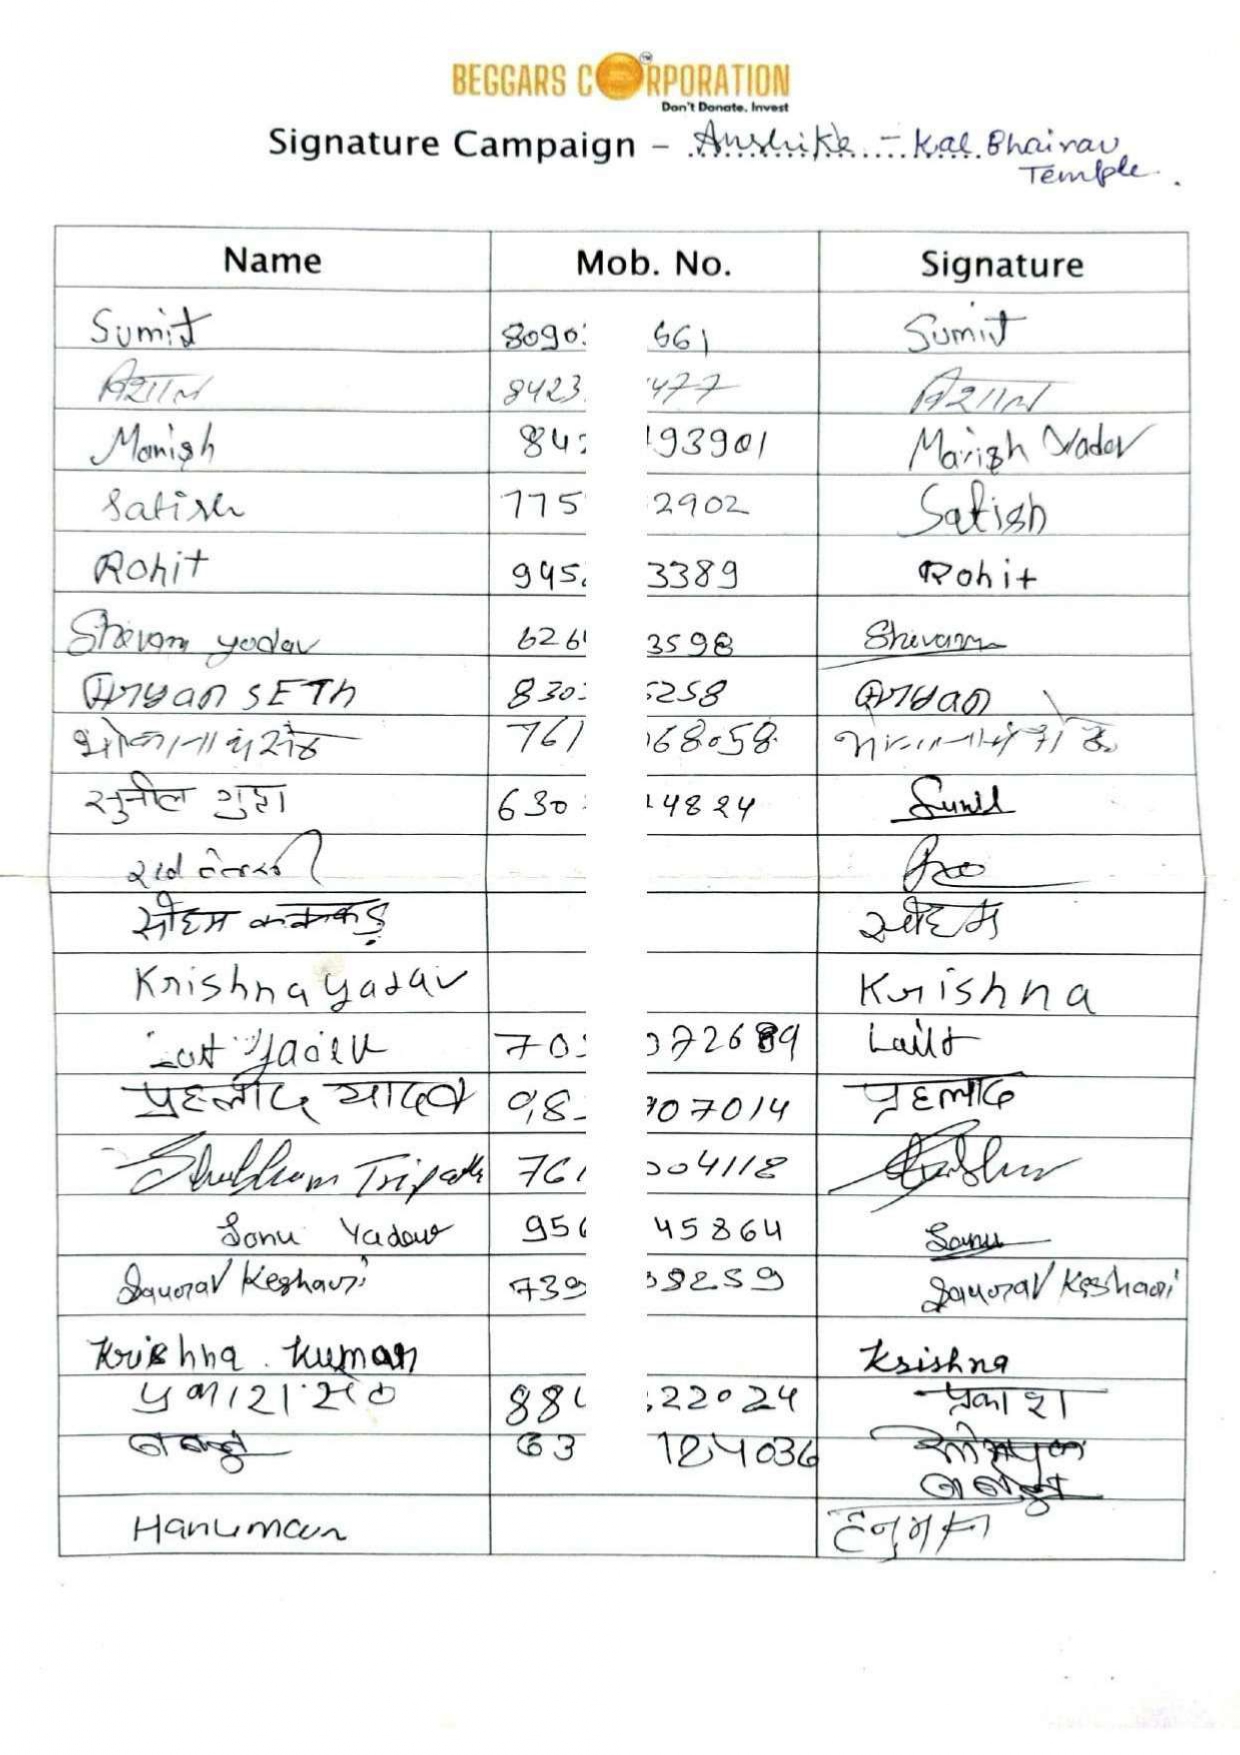 BEGGARS CORPORATION
Don't Donate. Invest
Signature Campaign - Anshika - Kal Bhairav
Temple.
Name Mob. No. Signature
Sumit 8090 661 Sumit
विशाल 8423 477 विशाल
Manish 84 93901 Manish Yadav
Satish 775 2902 Satish
Rohit 945 3389 Rohit
Shivam yadav 626 3598 Shivam
Aryan SETh 830 5258 Aryan
761 68058
सुनील गुप्ता 630 4824 Sunil
सोहम कक्कड़ सोहम
Krishna yadav Krishna
Yadav 70 72689 Lalit
प्रहलाद यादव 98 07014 प्रहलाद
Shubham Tripathi 761 004118
Sonu Yadav 956 45864 Sonu
Saurav Keshari 739 8259 Saurav Keshari
Krishna Kumar Krishna
प्रकाश सेठ 88 22024 प्रकाश
63 184036
Hanuman हनुमान